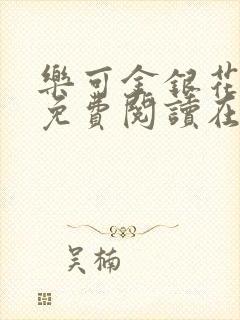 樂可金銀花
免費閱讀在
吴楠